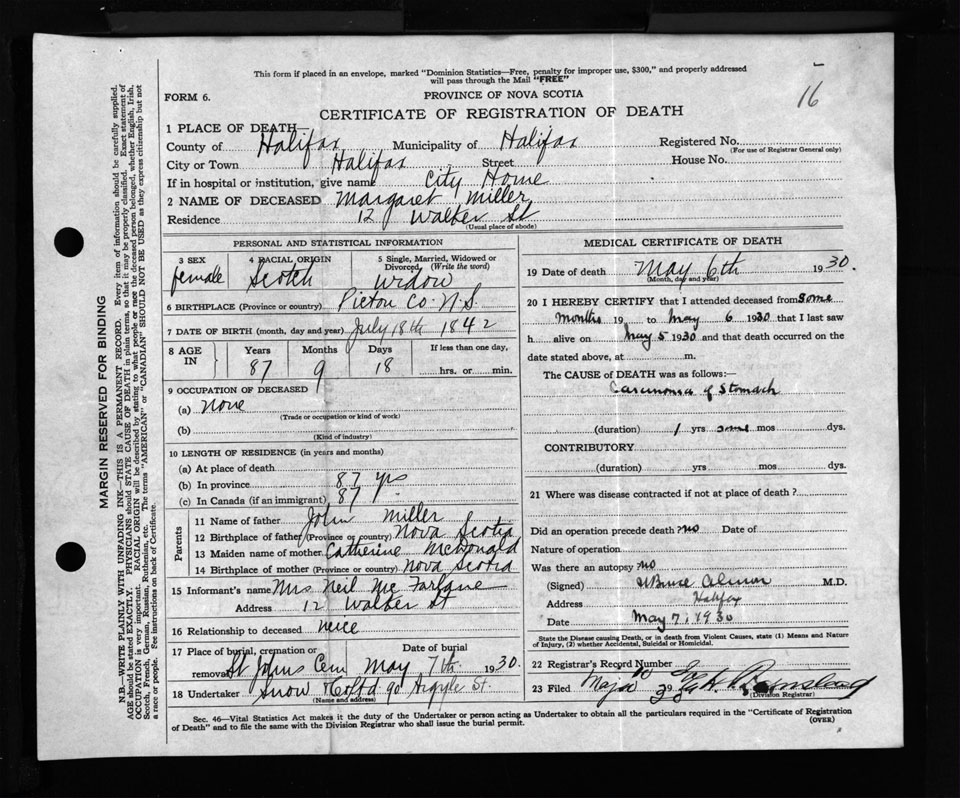 This form if placed in an envelope, marked "Dominion Statistics—Free, penalty for improper use, $300," and properly addressed
will pass through the Mail "FREE"
16
FORM 6. PROVINCE OF NOVA SCOTIA
CERTIFICATE OF REGISTRATION OF DEATH
1 PLACE OF DEATH
County of Halifax Municipality of Halifax Registered No.
(For use of Registrar General only)
City or Town Halifax Street House No.
If in hospital or institution, give name City Home
2 NAME OF DECEASED Margaret Miller
Residence 12 Walker St
(Usual place of abode)
PERSONAL AND STATISTICAL INFORMATION
3 SEX 4 RACIAL ORIGIN 5 Single, Married, Widowed or
Divorced (Write the word)
female Scotch Widow
6 BIRTHPLACE (Province or country) Pictou Co. N.S.
7 DATE OF BIRTH (month, day and year) July 18th 1842
8 AGE IN Years Months Days If less than one day,
87 9 18 hrs. or min.
9 OCCUPATION OF DECEASED
(a) None
(Trade or occupation or kind of work)
(b)
(Kind of industry)
10 LENGTH OF RESIDENCE (in years and months)
(a) At place of death
(b) In province 87 yrs
(c) In Canada (if an immigrant) 87
Parents
11 Name of father John Miller
12 Birthplace of father (Province or country) Nova Scotia
13 Maiden name of mother Catherine McDonald
14 Birthplace of mother (Province or country) Nova Scotia
15 Informant's name Mrs Neil Mc Farlane
Address 12 Walker St
16 Relationship to deceased neice
17 Place of burial, cremation or Date of burial
removal St Johns Cem May 7th 1930.
18 Undertaker Snow & Co Ltd 90 Argyle St.
(Name and address)
MEDICAL CERTIFICATE OF DEATH
19 Date of death May 6th 1930.
(Month, day and year)
20 I HEREBY CERTIFY that I attended deceased from some
months 19 to May 6 1930 that I last saw
h alive on May 5 1930 and that death occurred on the
date stated above, at m.
The CAUSE of DEATH was as follows:—
Carcinoma of Stomach
(duration) 1 yrs some mos dys.
CONTRIBUTORY
(duration) yrs mos dys.
21 Where was disease contracted if not at place of death?
Did an operation precede death? no Date of
Nature of operation
Was there an autopsy? no
(Signed) Bruce Almon M.D.
Address Halifax
Date May 7, 1930
State the Disease causing Death, or in death from Violent Causes, state (1) Means and Nature
of Injury, (2) whether Accidental, Suicidal or Homicidal.
22 Registrar's Record Number
23 Filed
(Division Registrar)
Sec. 46—Vital Statistics Act makes it the duty of the Undertaker or person acting as Undertaker to obtain all the particulars required in the "Certificate of Registration
of Death" and to file the same with the Division Registrar who shall issue the burial permit. (OVER)
MARGIN RESERVED FOR BINDING
N.B.—WRITE PLAINLY WITH UNFADING INK—THIS IS A PERMANENT RECORD. Every item of information should be carefully supplied.
AGE should be stated EXACTLY. PHYSICIANS should STATE CAUSE OF DEATH in plain terms, so that it may be properly classified. Exact statement of
OCCUPATION is very important. RACIAL ORIGIN will be described by stating to what people or race the deceased person belonged, whether English, Irish,
Scotch, French, German, Russian, Ruthenian, etc. The terms "AMERICAN" or "CANADIAN" SHOULD NOT BE USED as they express citizenship but not
a race or people. See instructions on back of Certificate.